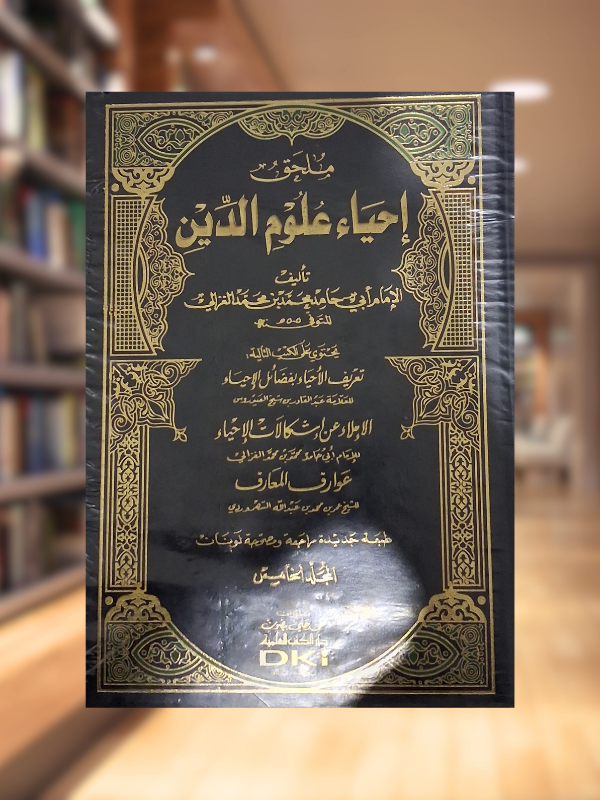 ملحق
إحياء علوم الدين
تأليف
الإمام أبي حامد محمد بن محمد الغزالي
المتوفى ٥٠٥ هـ
يحتوي على الكتب التالية:
تعريف الأحياء بفضائل الإحياء
للعلامة عبد القادر بن شيخ العيدروس
الإملاء عن إشكالات الإحياء
للإمام أبي حامد محمد بن محمد الغزالي
عوارف المعارف
للشيخ عمر بن محمد بن عبد الله السهروردي
طبعة جديدة مراجعة ومصححة
المجلد الخامس
منشورات
محمد علي بيضون
دار الكتب العلمية
DKi